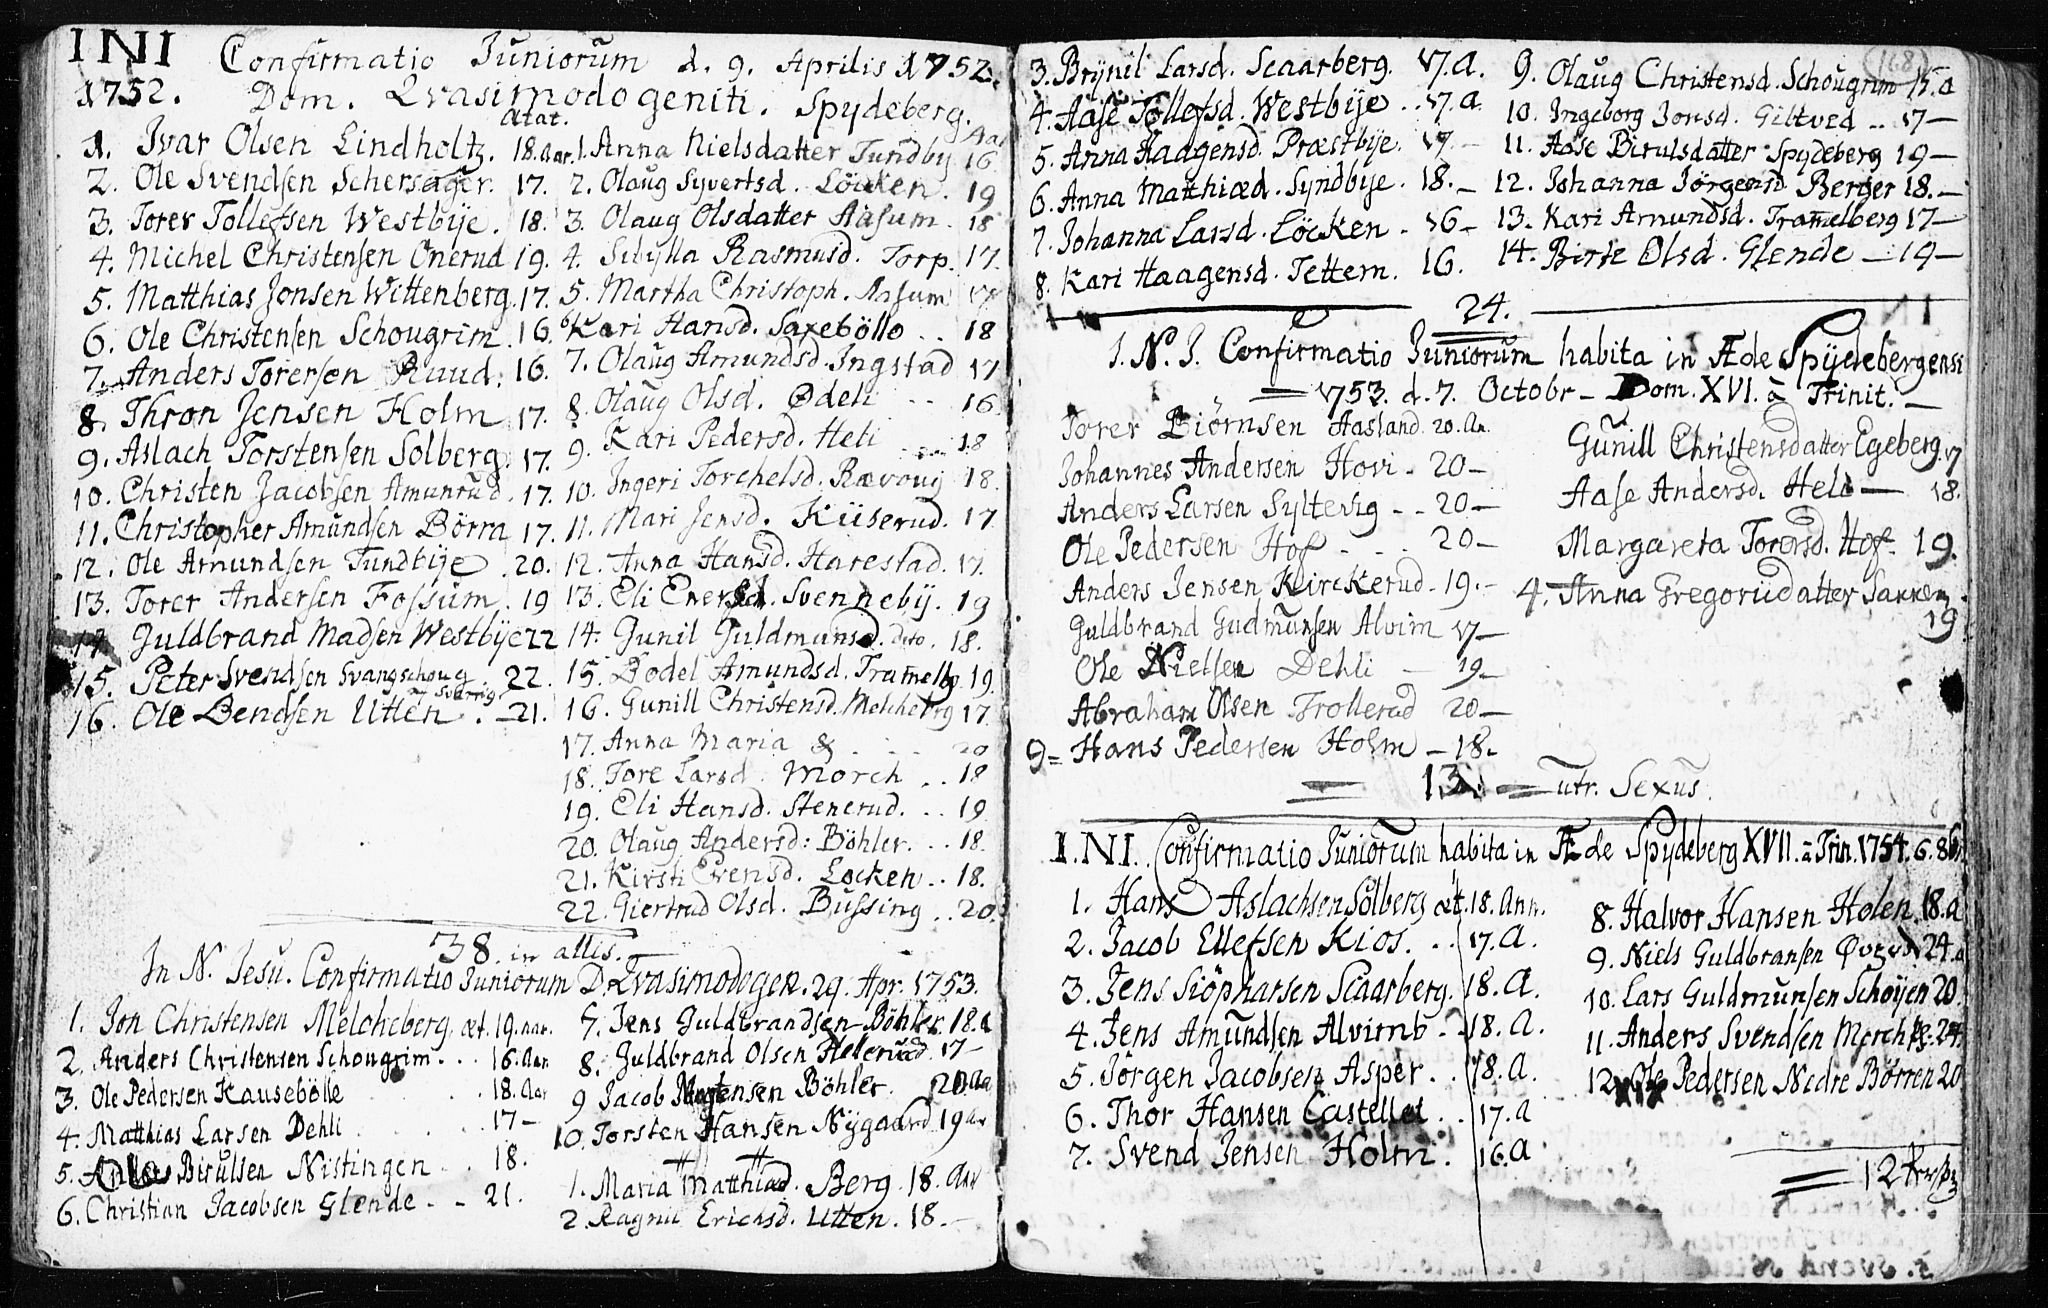 INI Confirmatio Juniorum d. 9. Aprilis 1752.
1752. Dom. Qvasimodogeniti. Spydeberg.
ætat.
1. Ivar Olsen Lindholtz. 18. aar.
2. Ole Svendsen Schersager. 17.
3. Torer Tollefsen Westbÿe. 18.
4. Michel Christensen Onerud 19.
5. Matthias Jonsen Wittenberg. 17.
6. Ole Christensen Schougrim. 16
7. Anders Torersen Ruud. 16.
8. Thron Jensen Holm 17.
9. Aslach Torstensen Solberg. 17.
10. Christen Jacobsen Amunrud. 17.
11. Christopher Amundsen Börra 17.
12. Ole Amundsen Tundbÿe. 20.
13. Torer Andersen Fossum. 19
14 Guldbrand Madsen Westbÿe 22
15. Peter Svendsen Svangschoug 22.
16. Ole Bendsen Utten. 21.
1. Anna Nielsdatter Tundby 16
2. Olaug Syvertsd. Löcken. 19
3. Olaug Olsdatter Aasum. 18
4. Sibylla Rasmusd. Torp. 17.
5. Martha Christoph. Aasum 17
6 Kari Hansd. Saxebölle .. 18
7. Olaug Amundsd. Ingstad 17
8. Olaug Olsd. Ødeli -- 16.
9. Kari Pedersd. Heli .... 18
10. Ingeri Torchelsd. Rævoug 18.
11. Mari Jensd. Kiiserud. 17.
12. Anna Hansd. Harestad. 17.
13. Eli Enersd. Svennebÿ. 19
14. Gunil Guldmunsd. dito. 18.
15. Bodel Amundsd. Tramelbg. 19.
16. Gunill Christensd. Melcheberg 17.
17. Anna Maria & . - - 20
18. Tore Larsd. Morch .. 18
19. Eli Hansd. Stenerud. .. 19
20. Olaug Andersd: Böhler. .. 18.
21. Kirsti Evensd. Locken .. 18.
22. Giertrud Olsd. Bussing .. 20.
38. in alles.
In N. Jesu. Confirmatio Juniorum D. Qvasimodogen. 29. Apr. 1753.
1. Jon Christensen Melcheberg æt. 19. aar.
2. Anders Christensen Schougrim. . . 16. Aar
3. Ole Pedersen Kausebölle . 18. Aar
4. Matthias Larsen Dehli . . . 17 –
5. Birulsen Nistingen . . 18.
6. Christian Jacobsen Glende - - 21.
7. Jens Guldbrandsen Böhler 18. a
8. Guldbrand Olsen Hellerud 17 –
9 Jacob Mortensen Böhler. 20. Aa
10. Torsten Hansen Nÿgaard 19 ar
1. Maria Matthiad. Berg. 18. Aar
2. Ragnil Erichsd. Utten. 18. –
168
3. Brÿnil Larsd. Scaarberg. 17. a.
4. Aase Tollefsd. Westbÿe .. 17. a.
5. Anna Haagensd. Præstbÿe. 17. –
6. Anna Matthiæd. Syndbÿe. 18. –
7. Johanna Larsd. Löcken - 16 –
8. Kari Haagensd. Tettem. 16.
9. Olaug Christensd. Schougrim 15. a
10. Ingeborg Jonsd. Giltved .. 17 –
11. Aase Birulsdatter Spydeberg 19 –
12. Johanna Jörgensd Berger 18. –
13. Kari Amundsd. Tramelberg 17 –
14. Birte Olsd. Glende – 19 –
24.
I. N. J. Confirmatio Juniorum habita in Æde Spÿdebergensi
1753. d. 7. Octobr – Dom. XVI. à Trinit. –
Torer Biörnsen Aasland. 20. An.
Johannes Andersen Hovi - 20 –
Anders Larsen Syltevig - - 20 –
Ole Pedersen Hof - . . 20 –
Anders Jensen Kirckerud - 19. –
Guldbrand Gudmunsen Alvim 17 –
Ole Nielsen Dehli – 19 –
Abraham Olsen Trollerud 20 –
9 = Hans Pedersen Holm – 18.
Gunill Christensdatter Egeberg. 17
Aase Andersd. Heli – 18.
Margareta Torersd. Hof. 19.
4. Anna Gregoriidatter
19
13. utr. Sexus.
I. N I. Confirmatio Juniorum habita in Æde Spydeberg XVII. à Trin. 1754. 6. 8br
1. Hans Aslachsen Solberg æt. 18. Ann.
2. Jacob Ellefsen Kios. . . 17. a.
3. Jens Siöpharsen Scaarberg. 18. a.
4. Jens Amundsen Alvimb - . 18. a.
5. Jörgen Jacobsen Asper . . 18. a.
6. Thor Hansen Castellet . . 17. a
7. Svend Jensen Holm . 16. a
8. Halvor Hansen Holen. 18. a
9. Niels Guldbransen 24. a
10. Lars Guldmunsen Schöijen 20.
11. Anders Svendsen Morch 24.
12. Ole Pedersen Nedre Börren 20
12